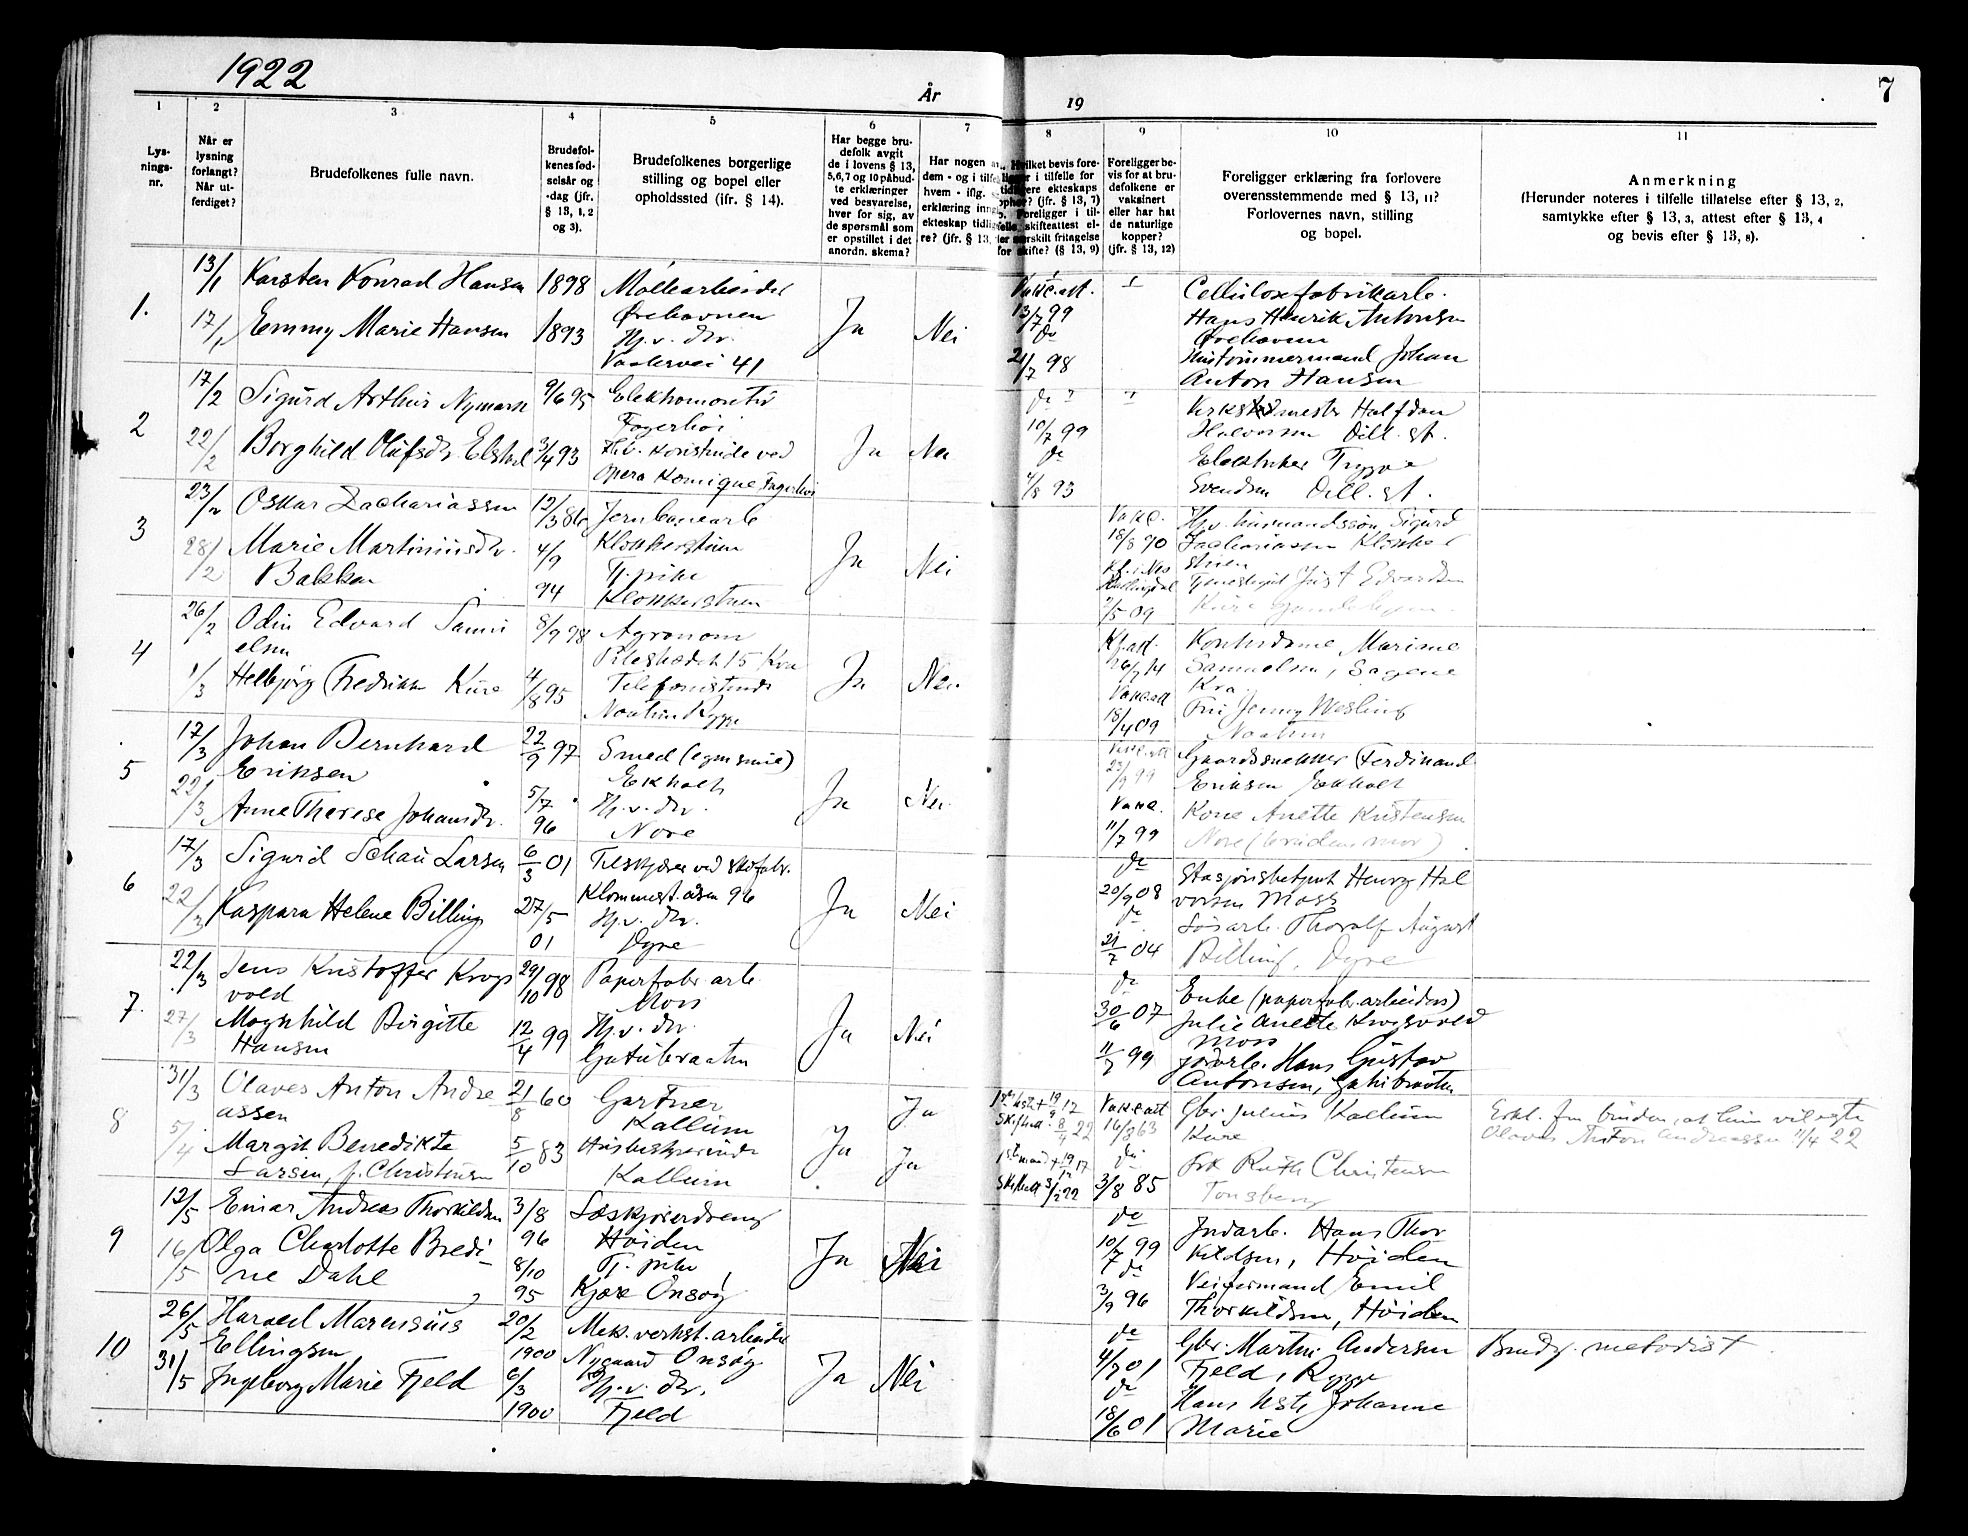 1922
År
19
7
1
2
3
4
5
6
7
8
9
10
11
Lys-
nings-
nr.
Når er
lysning
forlangt?
Når ut-
ferdiget?
Brudefolkenes fulle navn.
Brudefol-
kenes fød-
selsår og
-dag (jfr.
§ 13, 1, 2
og 3).
Brudefolkenes borgerlige
stilling og bopel eller
opholdssted (ifr. § 14).
Har begge bru-
defolk avgit
de i lovens § 13,
5,6,7 og 10 påbud-
te erklæringer
ved besvarelse,
hver for sig, av
de spørsmål som
er opstillet i det
anordn. skema?
Har nogen
dem - og i tilf
hvem - iflg.
erklæring inn
ekteskap tidli
re? (jfr. § 13,
ket bevis fore-
r i tilfelle for
ere ekteskaps
ophør? (jfr. § 13, 7)
Foreligger i til-
felle skifteattest el-
ler særskilt fritagelse
for skifte? (§ 13, 9)
Foreligger be-
vis for at bru-
defolkene er
vaksinert
eller har hat
de naturlige
kopper?
(jfr. § 13, 12)
Foreligger erklæring fra forlovere
overensstemmende med § 13, 11?
Forlovernes navn, stilling
og bopel.
Anmerkning
(Herunder noteres i tilfelle tillatelse efter § 13, 2,
samtykke efter § 13, 3, attest efter § 13, 4
og bevis efter § 13, 8).
1.
13/1
17/1
Karsten Konrad Hansen
Emmy Marie Hansen
1898
1893
Møllearbeider
Ørehavnen
Hj.v. dtr.
Vaalervei 41
Ja
Nei
Vakc.att.
13/7 99
do
21/7 98
Cellulosefabrikarb.
Hans Henrik Antonsen
Ørehavnen
Hustømmermand Johan
Anton Hansen
2
17/2
22/2
Sigurd Arthur Nymark
Borghild Olufsdtr.
9/6 95
3/4 93
Elektromontør
Fagerhøi
ved
Opera Komique Fagerhøi
Ja
Nei
do
10/7 99
do
93
Verkstedmester Halfdan
Halvorsen Dill. st.
Elektriker Trygve
Svendsen Dill. st.
3
23/2
28/2
Oskar Zachariassen
Marie Martiniusdtr.
Bakken
12/3 86
4/9
94
Jernbanearb
Klokkerstuen
Tj. pike
Klokkerstuen
Ja
Nei
Vakc.
18/8 90
Hallingdal
/5 09
Hj.v. husmandssøn Sigurd
Zachariassen Klokker
stuen
Edvardsen
Kure
4
26/2
1/3
Odin Edvard Samu
elsen
Helbjørg Fredrikke Kure
8/9 98
4/8 95
Agronom
Pilestrædet 15 Kra
Telefonistinde
Rygge
Ja
Nei
Kj.att.
14
Vakc.att
18/4 09
Kontordame Marime
Samuelsen, Sagene
Kra
Frk Jenny Wesling
5
17/3
22/3
Johan Bernhard
Eriksen
Anne Therese Johansdtr.
22/9 97
5/7
96
Smed (egen smie)
Ekholt
Hj.v. dtr.
Nore
Ja
Nei
Vakc.att
99
Vakc.
11/7 99
Gaardssnekker Ferdinand
Eriksen Ekholt
Kone Anette Kristensen
Nore (brudens mor)
6
17/3
22/3
Sigurd Schau Larsen
Kaspara Helene Billing
6/3 01
27/5
01
Tilskjærer ved skofabr.
96
Hj.v. dtr.
Dyre
Ja
Nei
do
20/9 08
do
21/7 04
Stasjonsbetjent Henry Hal
vorsen Moss
Løsarb. Thoralf August
Billing, Dyre
7.
22/3
27/3
Jens Kristoffer Krogs
vold
Magnhild Birgitte
Hansen
29/10 98
12/4 99
Papirfabr arb.
Moss
Hj.v. dtr.
Gatubraaten
Ja
Nei
do
30/6 07
11/7 99
Enke (papirfabr.arbeiders)
Julie Anette Krogsvold
Moss
Jordarb. Hans Gustav
Antonsen, Gatubraaten
8
31/3
5/4
Olaves Anton Andre
assen
Margit Benedikte
Larsen, f. Christensen
21/8 60
5/10 83
Gartner
Kallum
Husbestyrerinde
Kallum
Ja
Ja
Ja
1ste hstr + 19/9 17
Skifteatt. 8/4 22
1ste mand + 19/12 17
Skifteatt 3/2 22
Vakc att
16/8 63
do
3/8 85
Gbr. Julius Kallum
Kure
Frk Ruth Christensen
Tønsberg
Erkl. fra bruden, at hun vil ægte
Olaves Anton Andreassen 4/4 22
9
12/5
16/5
Einar Andreas Thorkildsen
Olga Charlotte Bredi-
ne Dahl
3/8
96
8/10
95
Høiden
Tj. pike
Kjøre Onsøy
Ja
Nei
do
10/7 99
do
3/9 96
Jordarb. Hans Thor
kildsen, Høiden
Veiformand Emil
Thorkildsen, Høiden
10
26/5
31/5
Harald Marensius
Ellingsen
Ingeborg Marie Fjeld
20/2
1900
6/3
1900
Mek. verkst. arbeider
Nygaard Onsøy
Hj.v. dtr.
Fjeld
Ja
Nei
do
4/7 01
do
18/6 01
Gbr. Martin Andersen
Fjeld, Rygge
Hans hstr. Johanne
Marie
Brudg. metodist